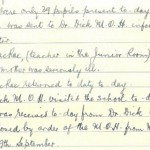 were only 29 pupils present to-day
was sent to Dr. Dick M.O.H. infor
(teacher in the Junior Room)
mother was seriously ill.
has returned to duty to-day.
Dick M.O.H. visited the school to-d
was received to-day from Dr. Dick
closed by order of the M.O.H. from
9th September.